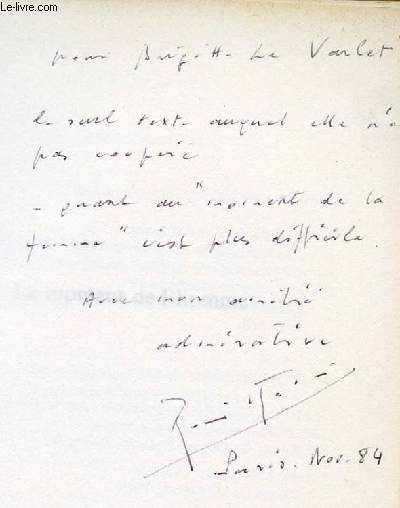 Le-livre.com
Pour Brigitte Le Varlet
le seul texte auquel elle n'a
pas coopéré
- quant au "moment de la
femme" c'est plus difficile.
Avec mon amitié
admirative
Paris. Nov. 84